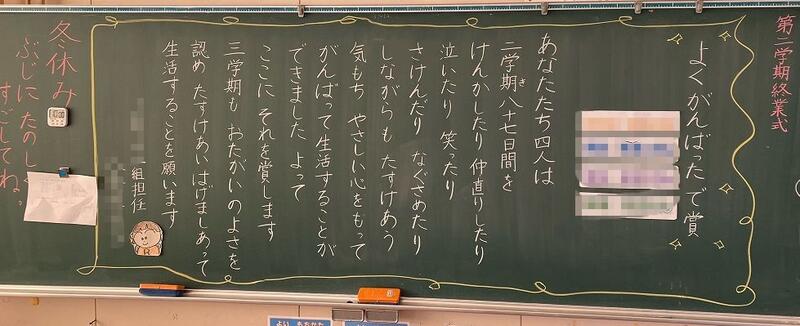 第二学期終業式
よくがんばったで賞
あなたたち四人は
二学期き八十七日間を
けんかしたり 仲直りしたり
泣いたり 笑ったり
さけんだり なぐさめたり
しながらも たすけあう
気もち やさしい心をもって
がんばって生活することが
できました よって
ここに それを賞します
三学期も おたがいのよさを
認め たすけあいはげましあって
生活することを願います
組担任
冬休み
ぶじに たのしく
すごしてね。
よい